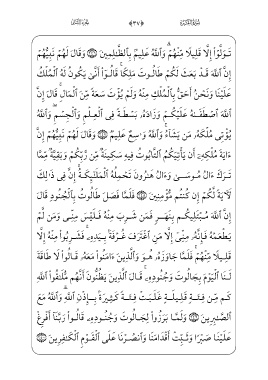 تَوَلَّوْا۟ إِلَّا قَلِيلًا مِّنْهُمْ وَٱللَّهُ عَلِيمٌۢ بِٱلظَّـٰلِمِينَ ۝ وَقَالَ لَهُمْ نَبِيُّهُمْ
إِنَّ ٱللَّهَ قَدْ بَعَثَ لَكُمْ طَالُوتَ مَلِكًا قَالُوٓا۟ أَنَّىٰ يَكُونُ لَهُ ٱلْمُلْكُ
عَلَيْنَا وَنَحْنُ أَحَقُّ بِٱلْمُلْكِ مِنْهُ وَلَمْ يُؤْتَ سَعَةً مِّنَ ٱلْمَالِ قَالَ إِنَّ
ٱللَّهَ ٱصْطَفَىٰهُ عَلَيْكُمْ وَزَادَهُۥ بَسْطَةً فِى ٱلْعِلْمِ وَٱلْجِسْمِ وَٱللَّهُ
يُؤْتِى مُلْكَهُۥ مَن يَشَآءُ وَٱللَّهُ وَٰسِعٌ عَلِيمٌ ۝ وَقَالَ لَهُمْ نَبِيُّهُمْ إِنَّ
ءَايَةَ مُلْكِهِۦٓ أَن يَأْتِيَكُمُ ٱلتَّابُوتُ فِيهِ سَكِينَةٌ مِّن رَّبِّكُمْ وَبَقِيَّةٌ مِّمَّا
تَرَكَ ءَالُ مُوسَىٰ وَءَالُ هَـٰرُونَ تَحْمِلُهُ ٱلْمَلَـٰٓئِكَةُ إِنَّ فِى ذَٰلِكَ
لَـَٔايَةً لَّكُمْ إِن كُنتُم مُّؤْمِنِينَ ۝ فَلَمَّا فَصَلَ طَالُوتُ بِٱلْجُنُودِ قَالَ
إِنَّ ٱللَّهَ مُبْتَلِيكُم بِنَهَرٍ فَمَن شَرِبَ مِنْهُ فَلَيْسَ مِنِّى وَمَن لَّمْ
يَطْعَمْهُ فَإِنَّهُۥ مِنِّىٓ إِلَّا مَنِ ٱغْتَرَفَ غُرْفَةًۢ بِيَدِهِۦ فَشَرِبُوا۟ مِنْهُ إِلَّا
قَلِيلًا مِّنْهُمْ فَلَمَّا جَاوَزَهُۥ هُوَ وَٱلَّذِينَ ءَامَنُوا۟ مَعَهُۥ قَالُوا۟ لَا طَاقَةَ
لَنَا ٱلْيَوْمَ بِجَالُوتَ وَجُنُودِهِۦ قَالَ ٱلَّذِينَ يَظُنُّونَ أَنَّهُم مُّلَـٰقُوا۟ ٱللَّهِ
كَم مِّن فِئَةٍ قَلِيلَةٍ غَلَبَتْ فِئَةً كَثِيرَةًۢ بِإِذْنِ ٱللَّهِ وَٱللَّهُ مَعَ
ٱلصَّـٰبِرِينَ ۝ وَلَمَّا بَرَزُوا۟ لِجَالُوتَ وَجُنُودِهِۦ قَالُوا۟ رَبَّنَآ أَفْرِغْ
عَلَيْنَا صَبْرًا وَثَبِّتْ أَقْدَامَنَا وَٱنصُرْنَا عَلَى ٱلْقَوْمِ ٱلْكَـٰفِرِينَ ۝